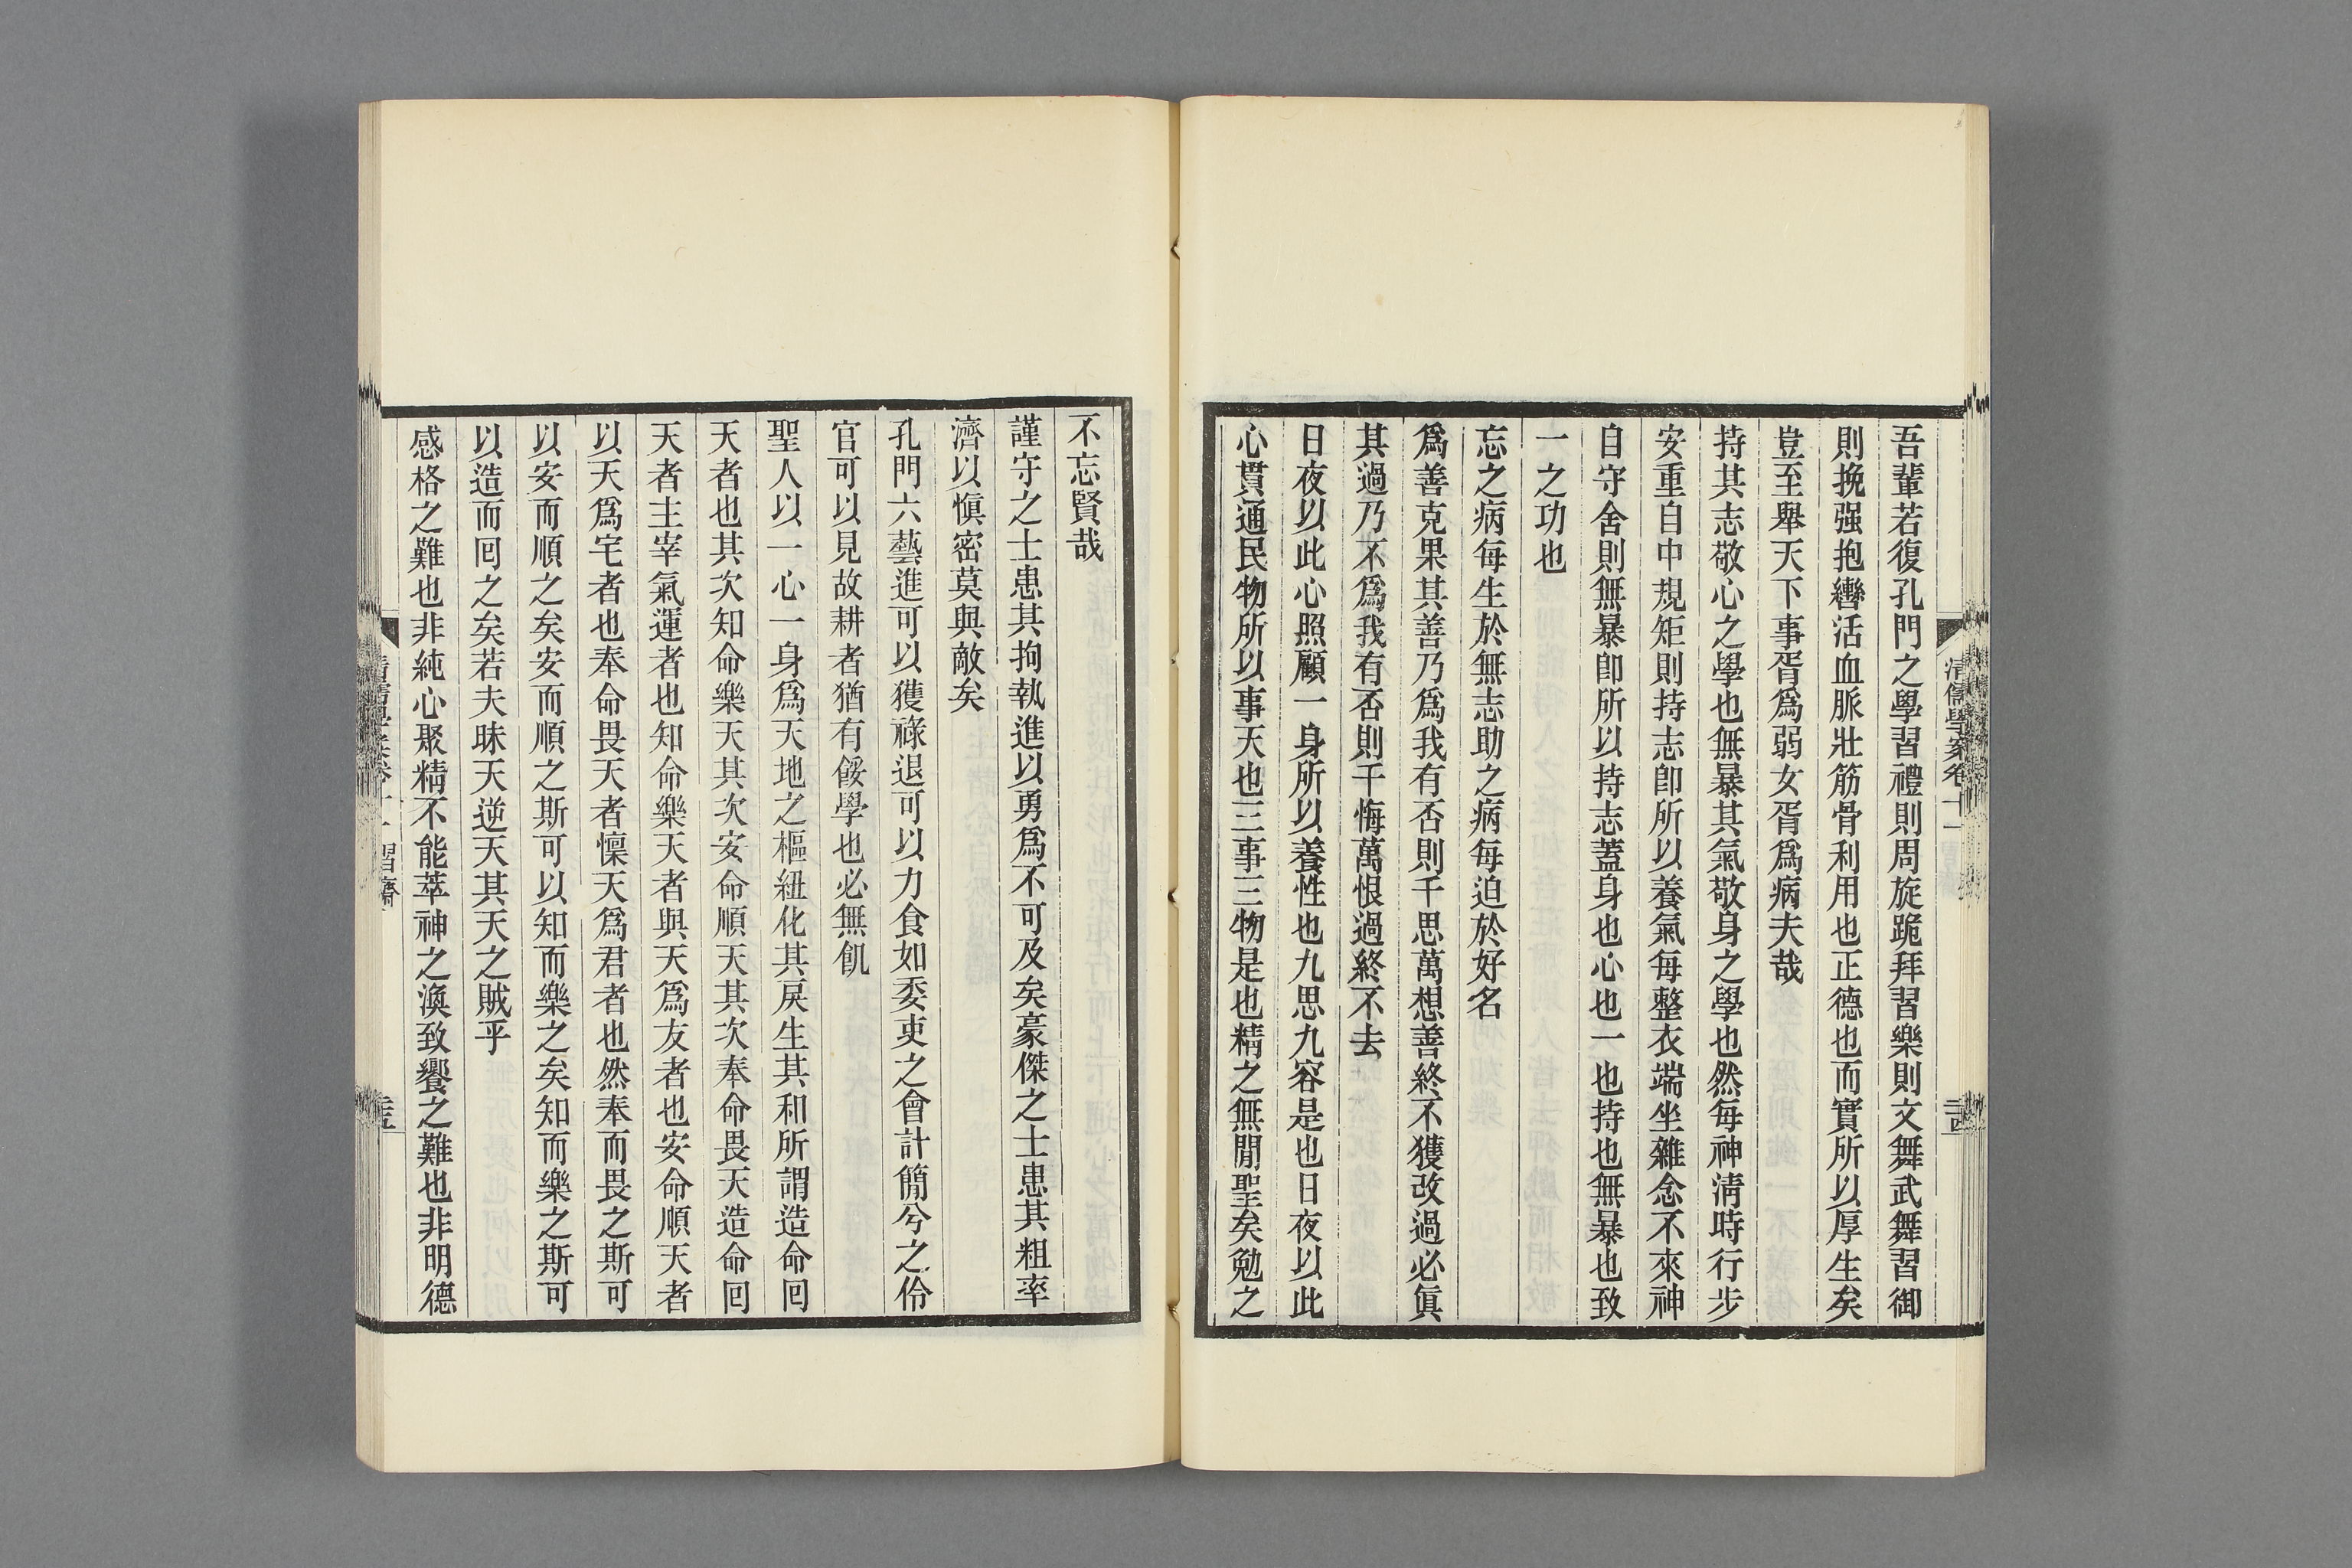 吾輩若復孔門之學習禮則周旋跪拜習樂則文舞武舞習御
則挽强抱轡活血脈壯筋骨利用也正德也而實所以厚生矣
豈至舉天下事胥爲弱女胥爲病夫哉
持其志敬心之學也無暴其氣敬身之學也然每神淸時行步
安重自中規矩則持志卽所以養氣每整衣端坐雜念不來神
自守舍則無暴卽所以持志蓋身也心也一也持也無暴也致
一之功也
忘之病每生於無志助之病每迫於好名
爲善克果其善乃爲我有否則千思萬想善終不獲改過必眞
其過乃不爲我有否則千悔萬恨過終不去
日夜以此心照顧一身所以養性也九思九容是也日夜以此
心貫通民物所以事天也三事三物是也精之無閒聖矣勉之
清儒學案卷十一
不忘賢哉
謹守之士患其拘執進以勇爲不可及矣豪傑之士患其粗率
濟以愼密莫與敵矣
孔門六藝進可以獲祿退可以力食如委吏之會計簡兮之伶
官可以見故耕者猶有餒學也必無飢
聖人以一心一身爲天地之樞紐化其戾生其和所謂造命回
天者也其次知命樂天其次安命順天其次奉命畏天造命回
天者主宰氣運者也知命樂天者與天爲友者也安命順天者
以天爲宅者也奉命畏天者懍天爲君者也然奉而畏之斯可
以安而順之矣安而順之斯可以知而樂之矣知而樂之斯可
以造而回之矣若夫昧天逆天其天之賊乎
感格之難也非純心聚精不能萃神之渙致饗之難也非明德
習齋